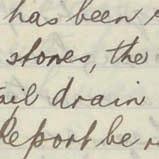 has been
stones, the
drain
Report be